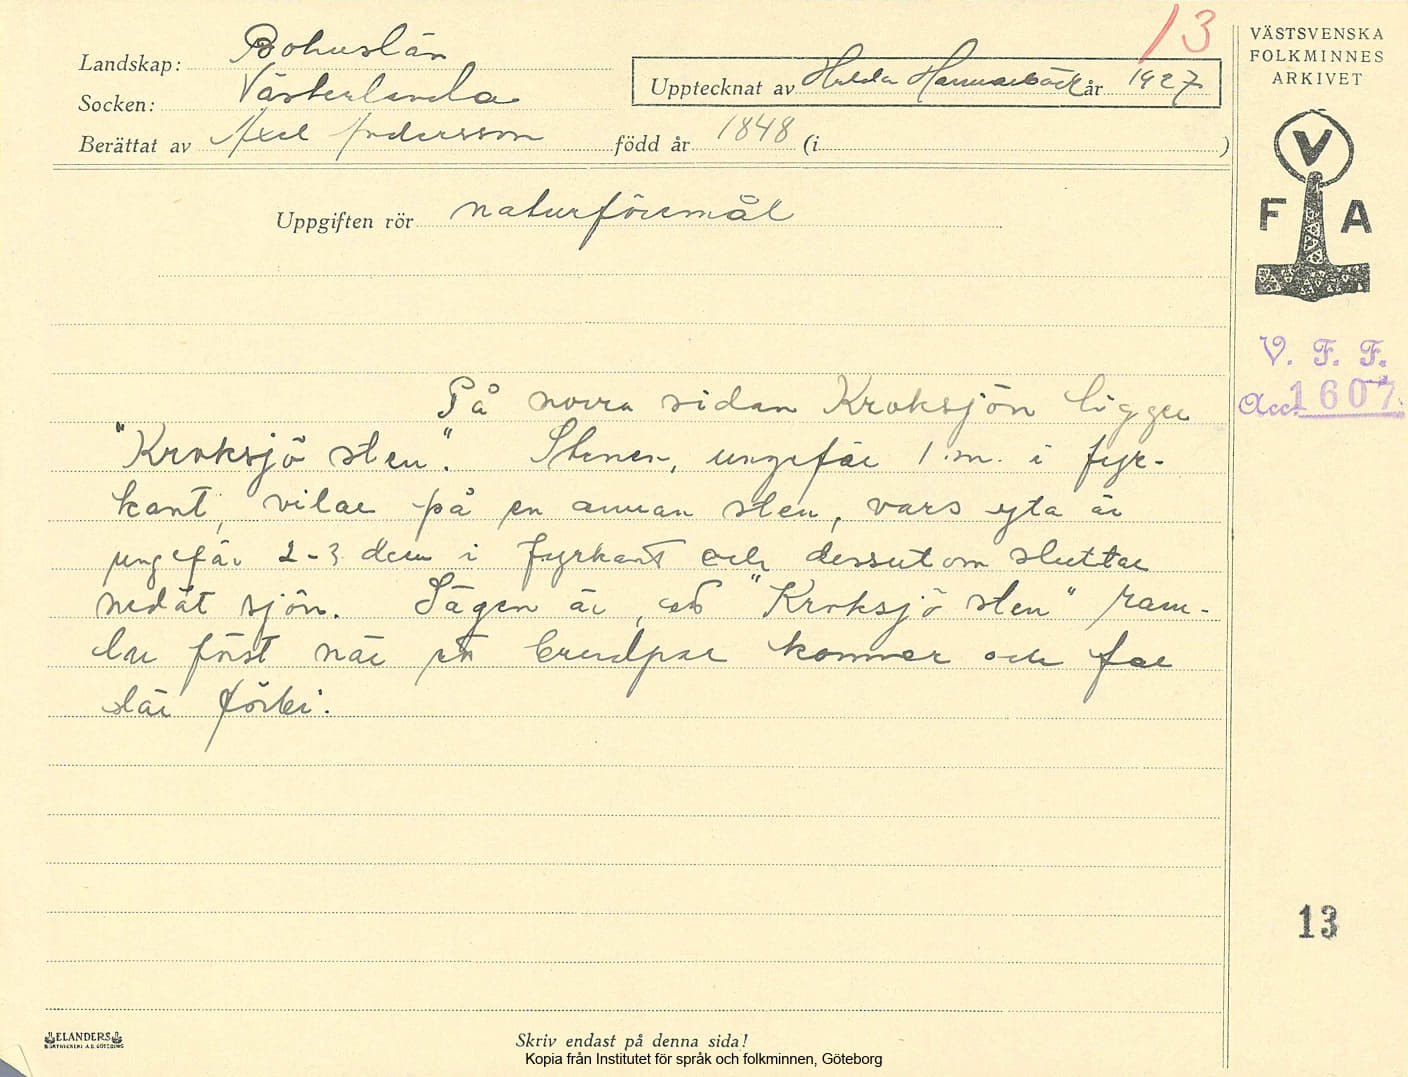 13
Landskap: Bohuslän
Socken: Västerlanda
Upptecknat av Hulda Hammarbäck år 1927
Berättat av Axel Andersson född år 1848 (i )
VÄSTSVENSKA
FOLKMINNES
ARKIVET
V
F A
Uppgiften rör naturföremål
V. F. F.
Acc. 1607.
På norra sidan Kroksjön ligger
"Kroksjö sten". Stenen, ungefär 1 m. i fyr-
kant, vilar på en annan sten, vars yta är
ungefär 2-3 dcm i fyrkant och dessutom sluttar
nedåt sjön. Sägen är, att "Kroksjö sten" ram-
lar först när ett brudpar kommer och far
där förbi.
13
ELANDERS
BOKTRYCKERI A.B. GÖTEBORG
Skriv endast på denna sida!
Kopia från Institutet för språk och folkminnen, Göteborg